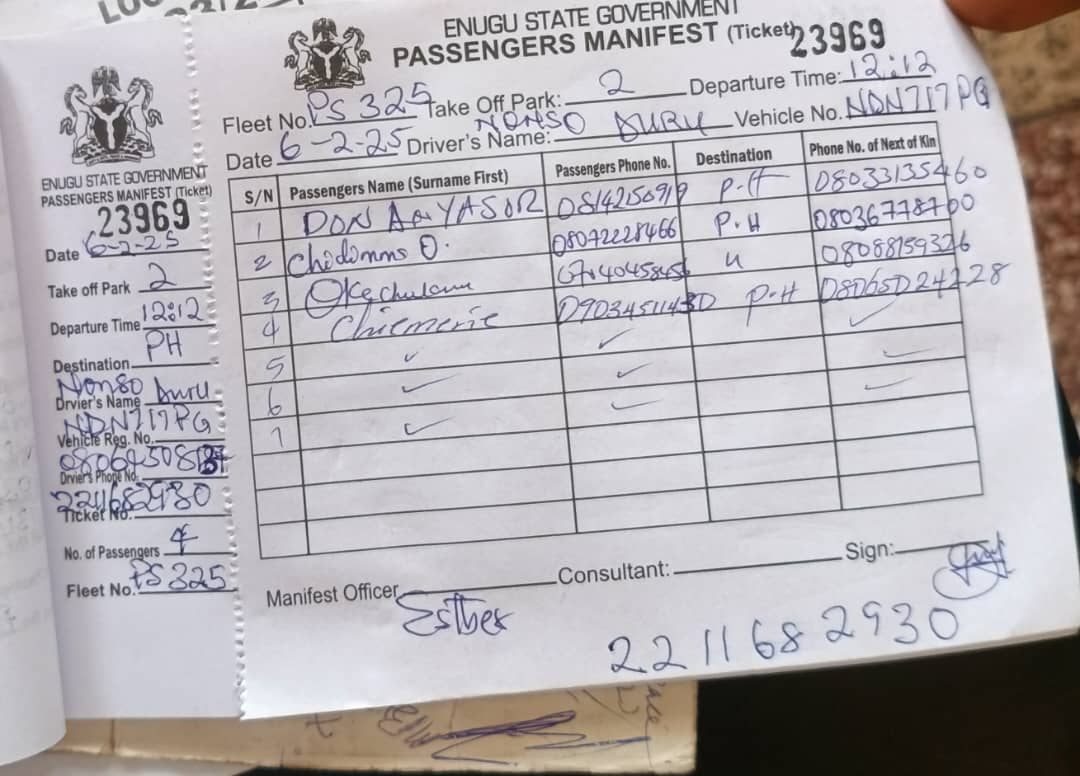 ENUGU STATE GOVERNMENT
PASSENGERS MANIFEST (Ticket)
23969
Date 6-2-25
Take off Park 2
Departure Time 12:12
Destination PH
Drvier's Name Nonso Duru
Vehicle Reg. No. NDN717PG
Drvier's Phone No.
Ticket No. 2211682930
No. of Passengers 4
Fleet No. PS 325
ENUGU STATE GOVERNMENT
PASSENGERS MANIFEST (Ticket) 23969
Fleet No. PS 325 Take Off Park: 2 Departure Time: 12:12
Date 6-2-25 Driver's Name: NONSO DURU Vehicle No. NDN717PG
S/N Passengers Name (Surname First) Passengers Phone No. Destination Phone No. of Next of Kin
1 DON P.H 08033135460
2 Chidimma O. 08072228466 P.H 08036778700
3 08088159326
4 Chiemerie 09034511430 P.H 08065024228
5
6
7
Manifest Officer Esther Consultant: Sign:
2211682930